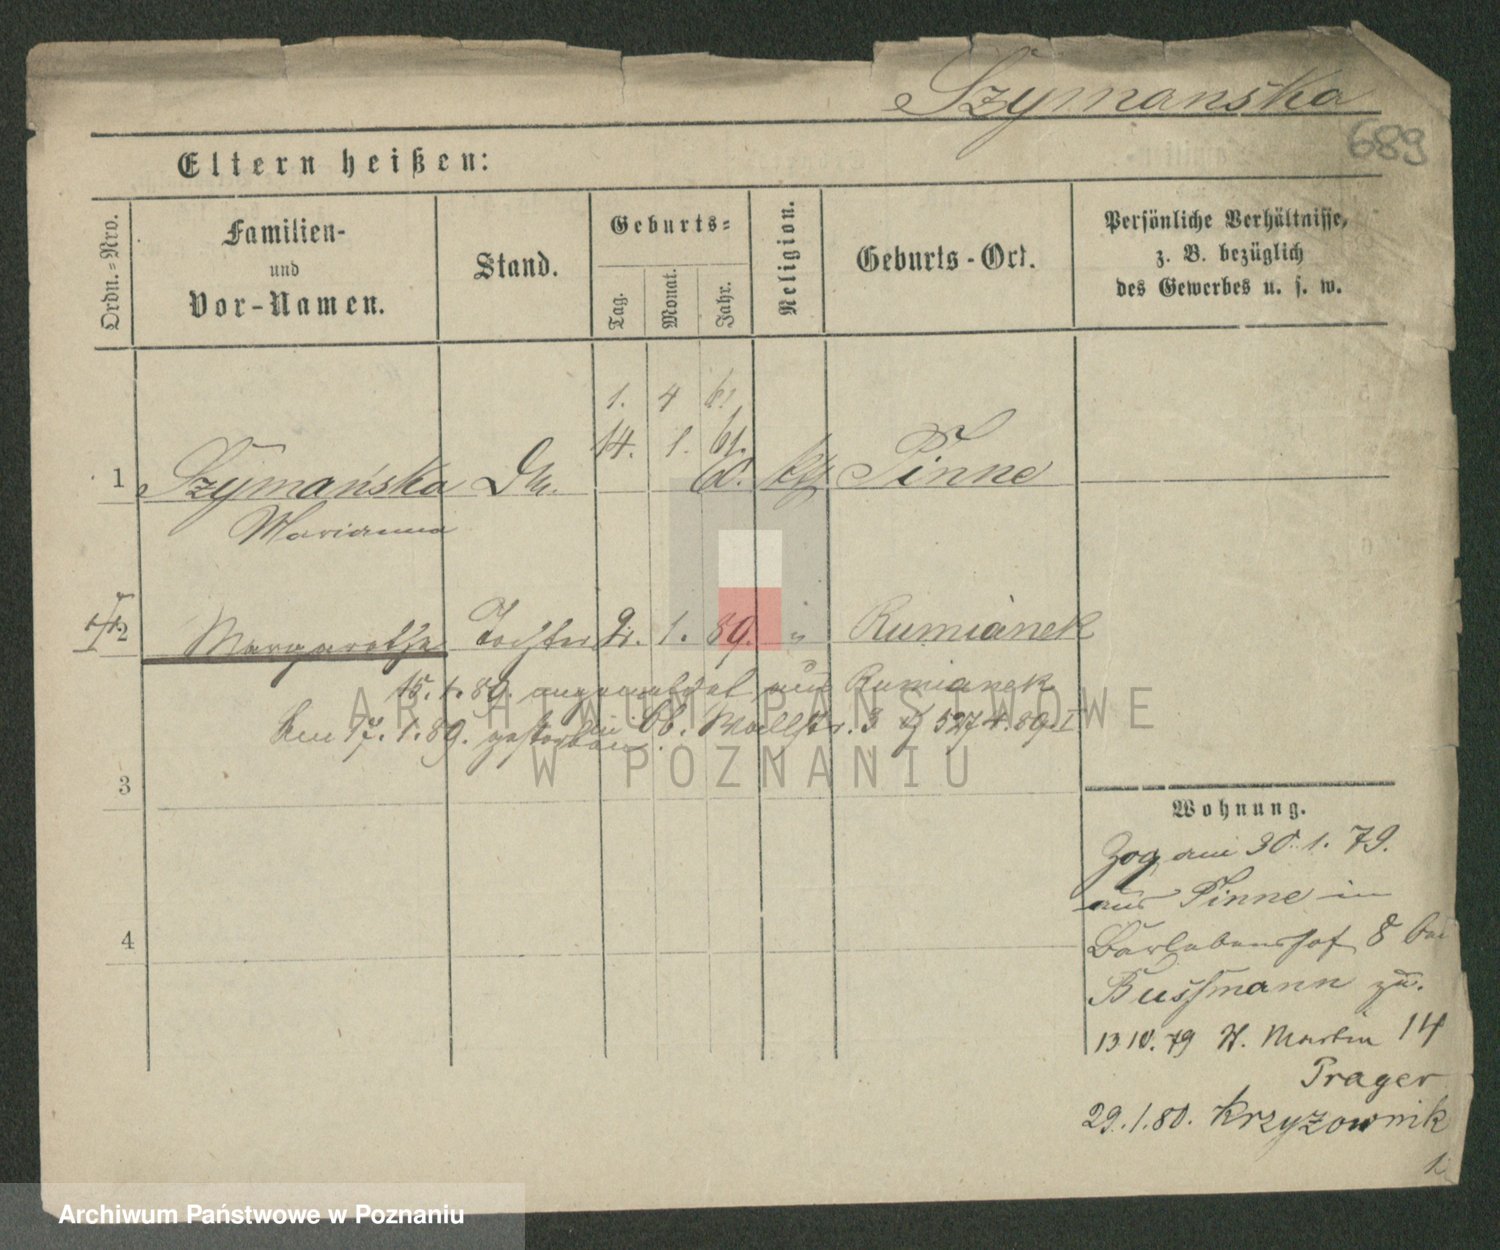 Szymanska
689
Eltern heißen:
Ordn.=Nro.
Familien-
und
Vor-Namen.
Stand.
Geburts=
Tag.
Monat.
Jahr.
Religion.
Geburts-Ort.
Persönliche Verhältnisse,
z. B. bezüglich
des Gewerbes u. s. w.
1. 4 61.
14. 1. 61.
1 Szymańska 60. kth Pinne
Marianna
2 Margarethe Tochter 9. 1. 89. Rumianek
15. 1. 89. angemeldet aus Rumianek
Am 17. 1. 89. gestorben. Wallstr. 3 527 4. 89. I
3
4
Wohnung.
Zog am 30. 1. 79.
aus Pinne in
Berlebenshof 8 bei
Bussmann zu.
13 10. 79 St. Martin 14
Prager
29. 1. 80. Krzyzownik
1
ARCHIWUM PAŃSTWOWE
W POZNANIU
Archiwum Państwowe w Poznaniu